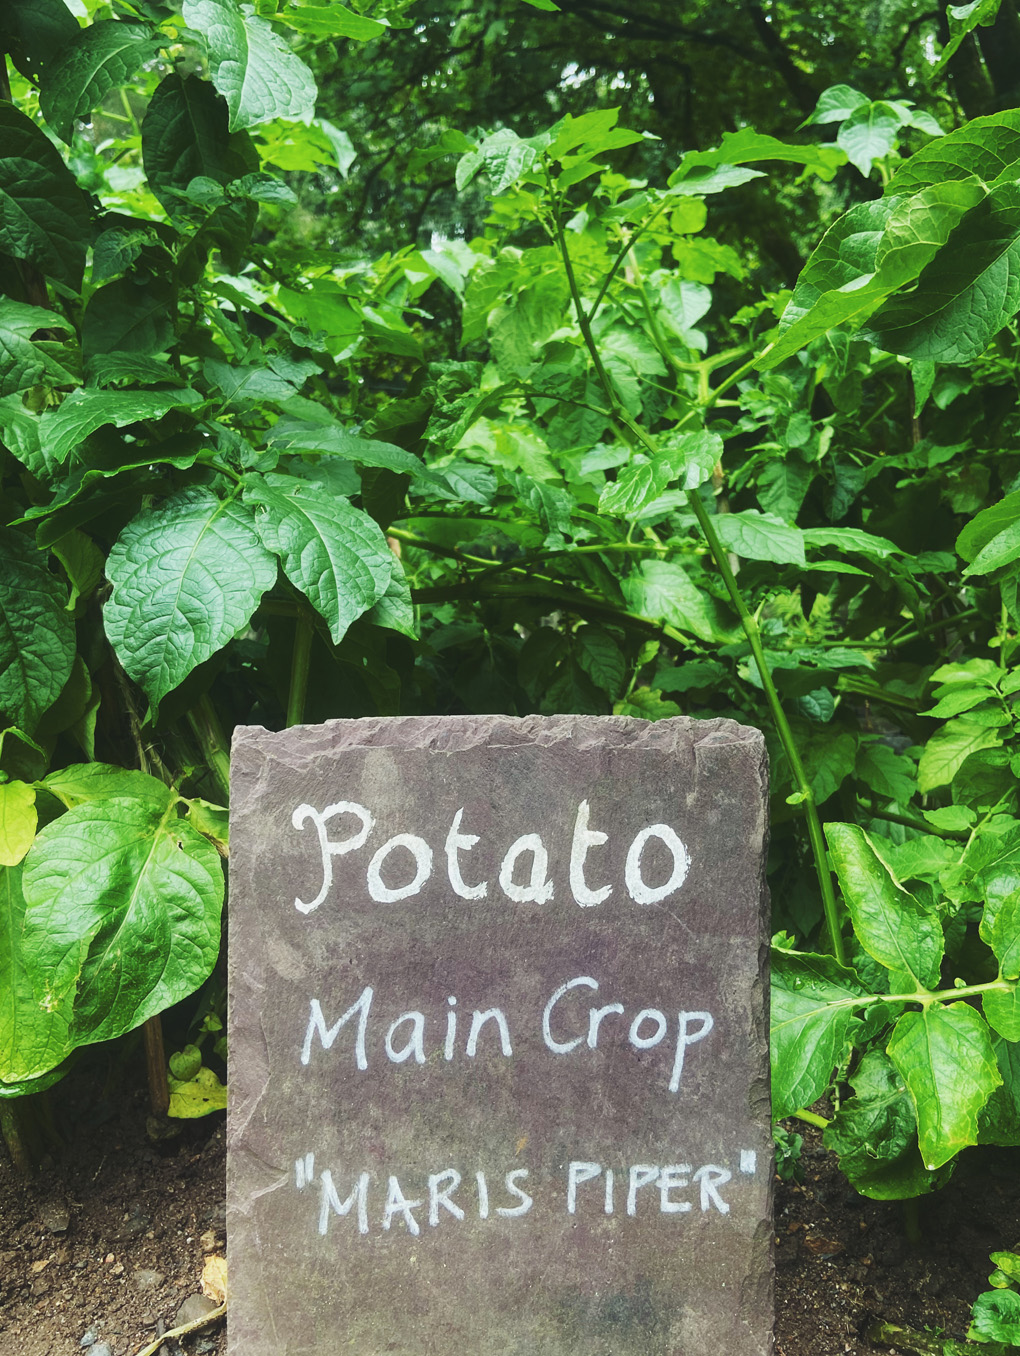 Potato
Main Crop
"MARIS PIPER"